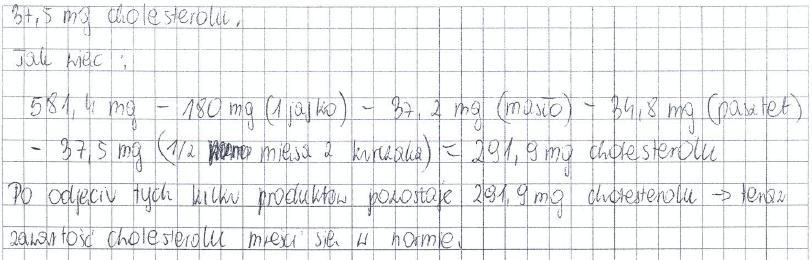 37,5 mg cholesterolu.
Tak więc :
581,4 mg - 180 mg (1 jajko) - 37,2 mg (masło) - 34,8 mg (pasztet)
- 37,5 mg (1/2 mięsa z kurczaka) = 291,9 mg cholesterolu
Po odjęciu tych kilku produktów pozostaje 291,9 mg cholesterolu → teraz
zawartość cholesterolu mieści się w normie.